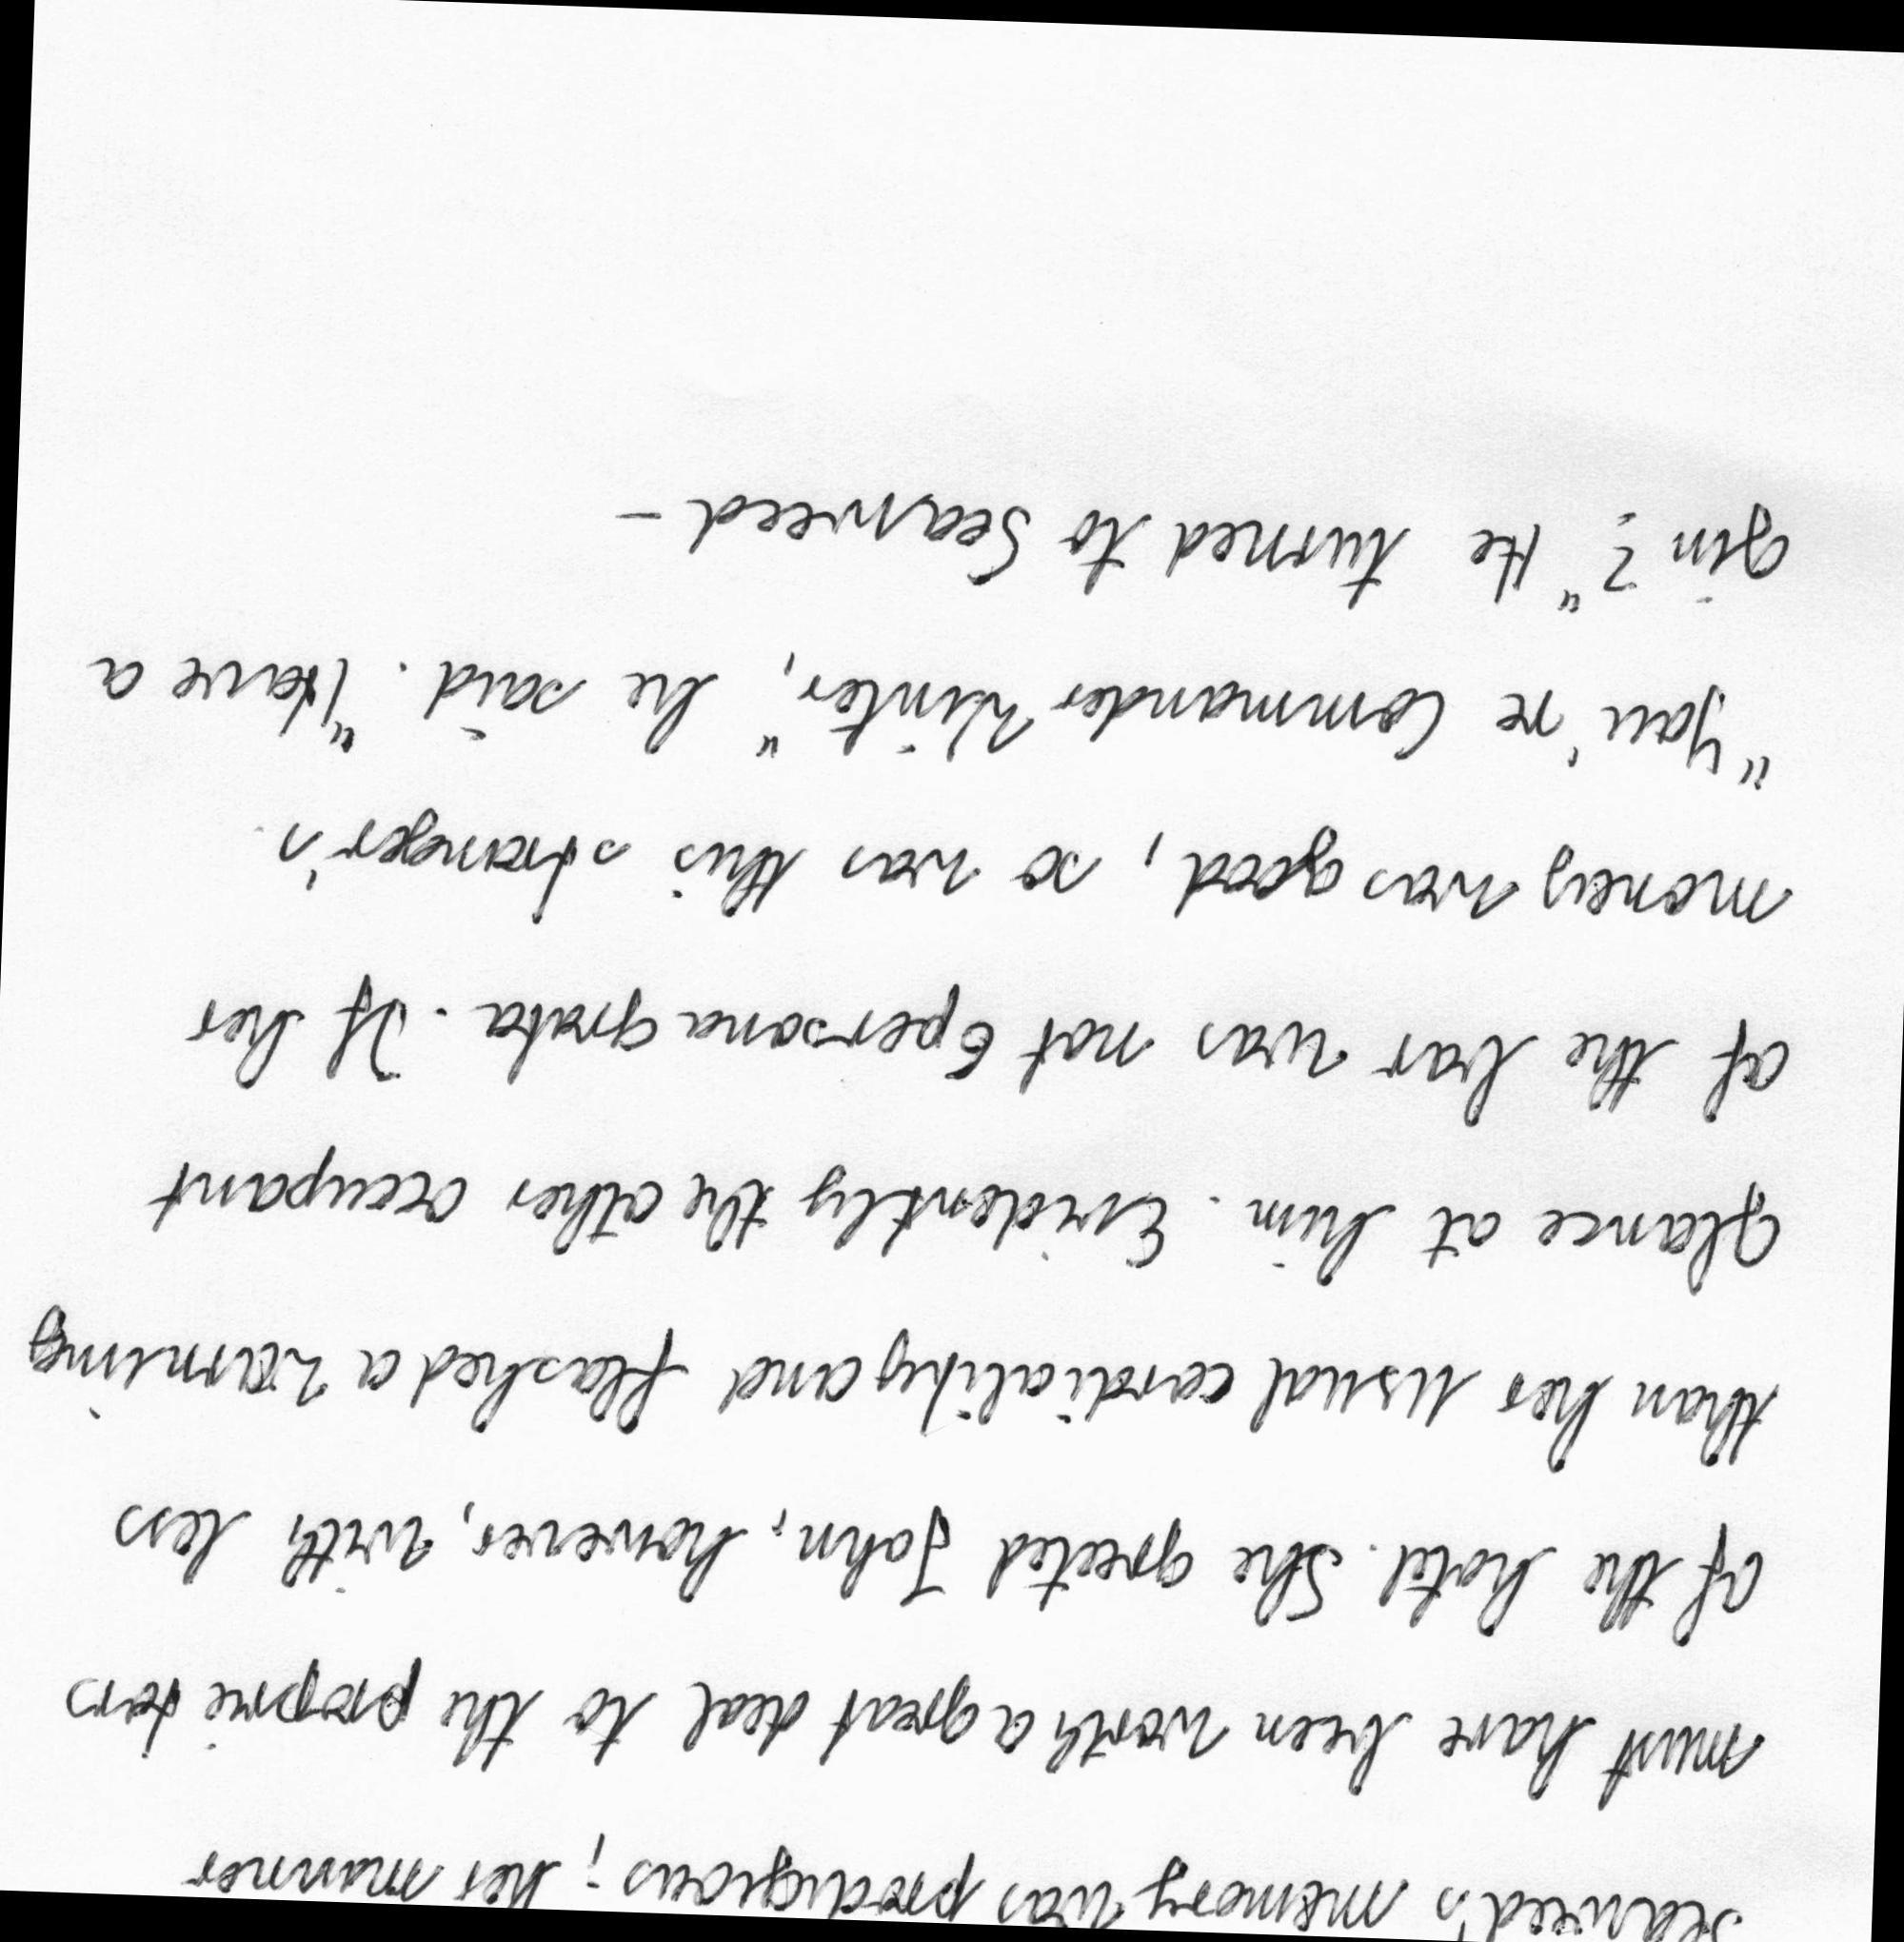 Seaweed's memory was prodigious; her manner
must have been worth a great deal to the proprietors
of the hotel. She greeted John, however, with less
than her usual cordiality and flashed a warning
glance at him. Evidently the other occupant
of the bar was not persona grata. If her
money was good, so was this stranger's.
"You're Commander Winter," he said. "Have a
gin?" He turned to Seaweed -